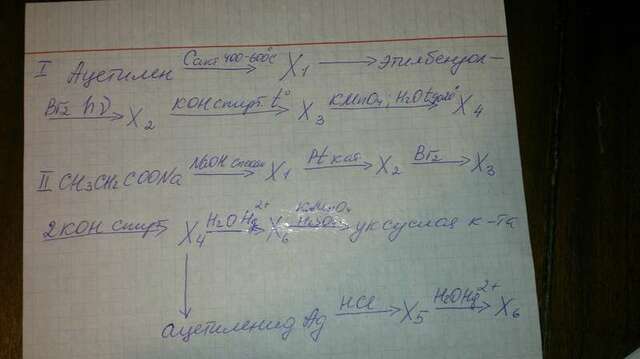 I Ацетилен Cакт 400-600°C → X1 → этилбензол-
Br2 hν → X2 KOH спирт. t° → X3 KMnO4; H2O t до 20° → X4
II CH3CH2COONa NaOH сплав → X1 Pt кат. → X2 Br2 → X3
2KOH спирт. → X4 H2O Hg2+ → X6 KMnO4 H2SO4 → уксусная к-та
ацетиленид Ag HCl → X5 H2O Hg2+ → X6